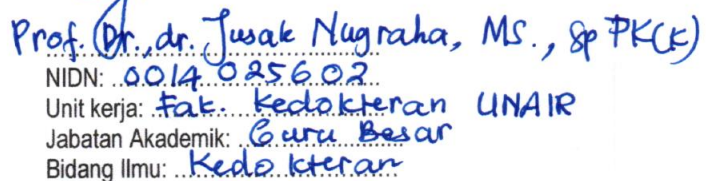 Prof. Dr., dr. Jusak Nugraha, MS., Sp PK(K)
NIDN: 0014025602
Unit kerja: Fak. Kedokteran UNAIR
Jabatan Akademik: Guru Besar
Bidang Ilmu: Kedokteran